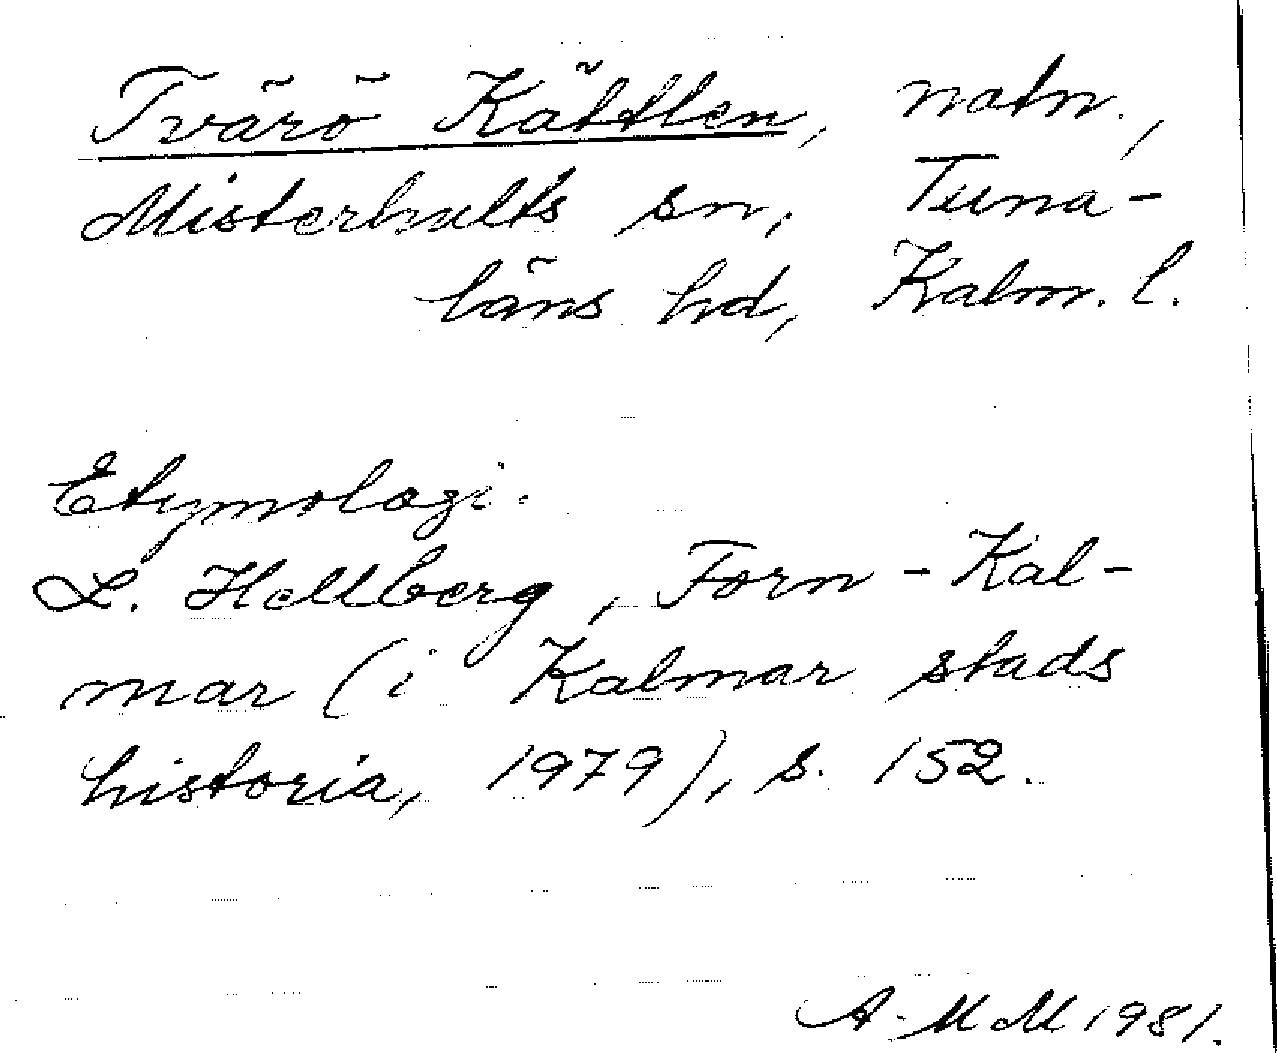 Tvärö Kättlen, natn.,
Misterhults sn, Tuna-
läns hd, Kalm. l.
Etymologi.
L. Hellberg, Forn-Kal-
mar (i Kalmar stads
historia, 1979), s. 152.
A-MM 1981.